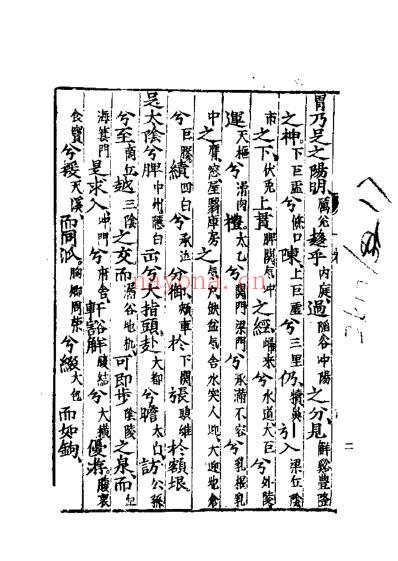 胃乃足之陽明厲兌趨乎內庭過陷谷冲陽之分見解谿豐隆
之神下巨虛兮條口陳上巨虛兮三里仍犢鼻引入梁丘陰
市之下伏兔上貫髀関氣中之經歸來兮水道大巨兮外陵
運天樞兮滑肉禮太乙兮関門梁門兮承滿不容兮乳根乳
中之膺窓屋翳庫房之氣戶缺盆氣舍水突人迎大迎地倉
兮巨髎續四白兮承泣分御頰車於下関張頭維於額垠
足太陰兮脾中州隱白出兮大指頭赴大都兮瞻太白訪公孫
兮至商丘越三陰之交而漏谷地机可即步陰陵之泉而血
海箕門是求入冲門兮府舍軒豁解腹結兮大橫優游腹哀
食竇兮援天溪而同派胸鄉周榮兮綴大包而如鉤
二
nayona.cn